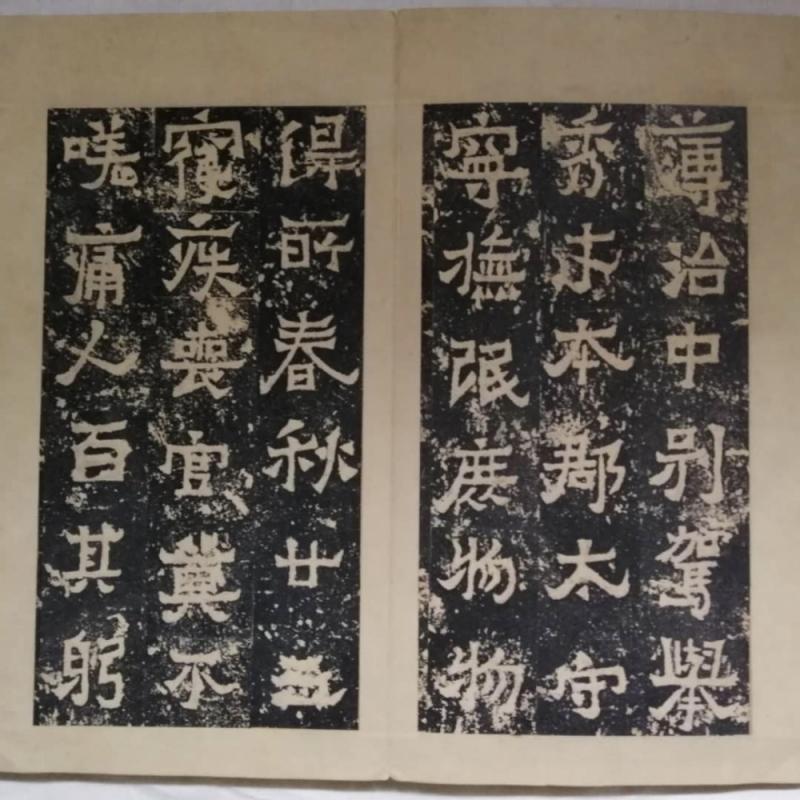 簿治中别駕舉
秀才本郡太守
寧撫氓庶物物
得所春秋廿五
寑疾喪官莫不
嗟痛人百其躬